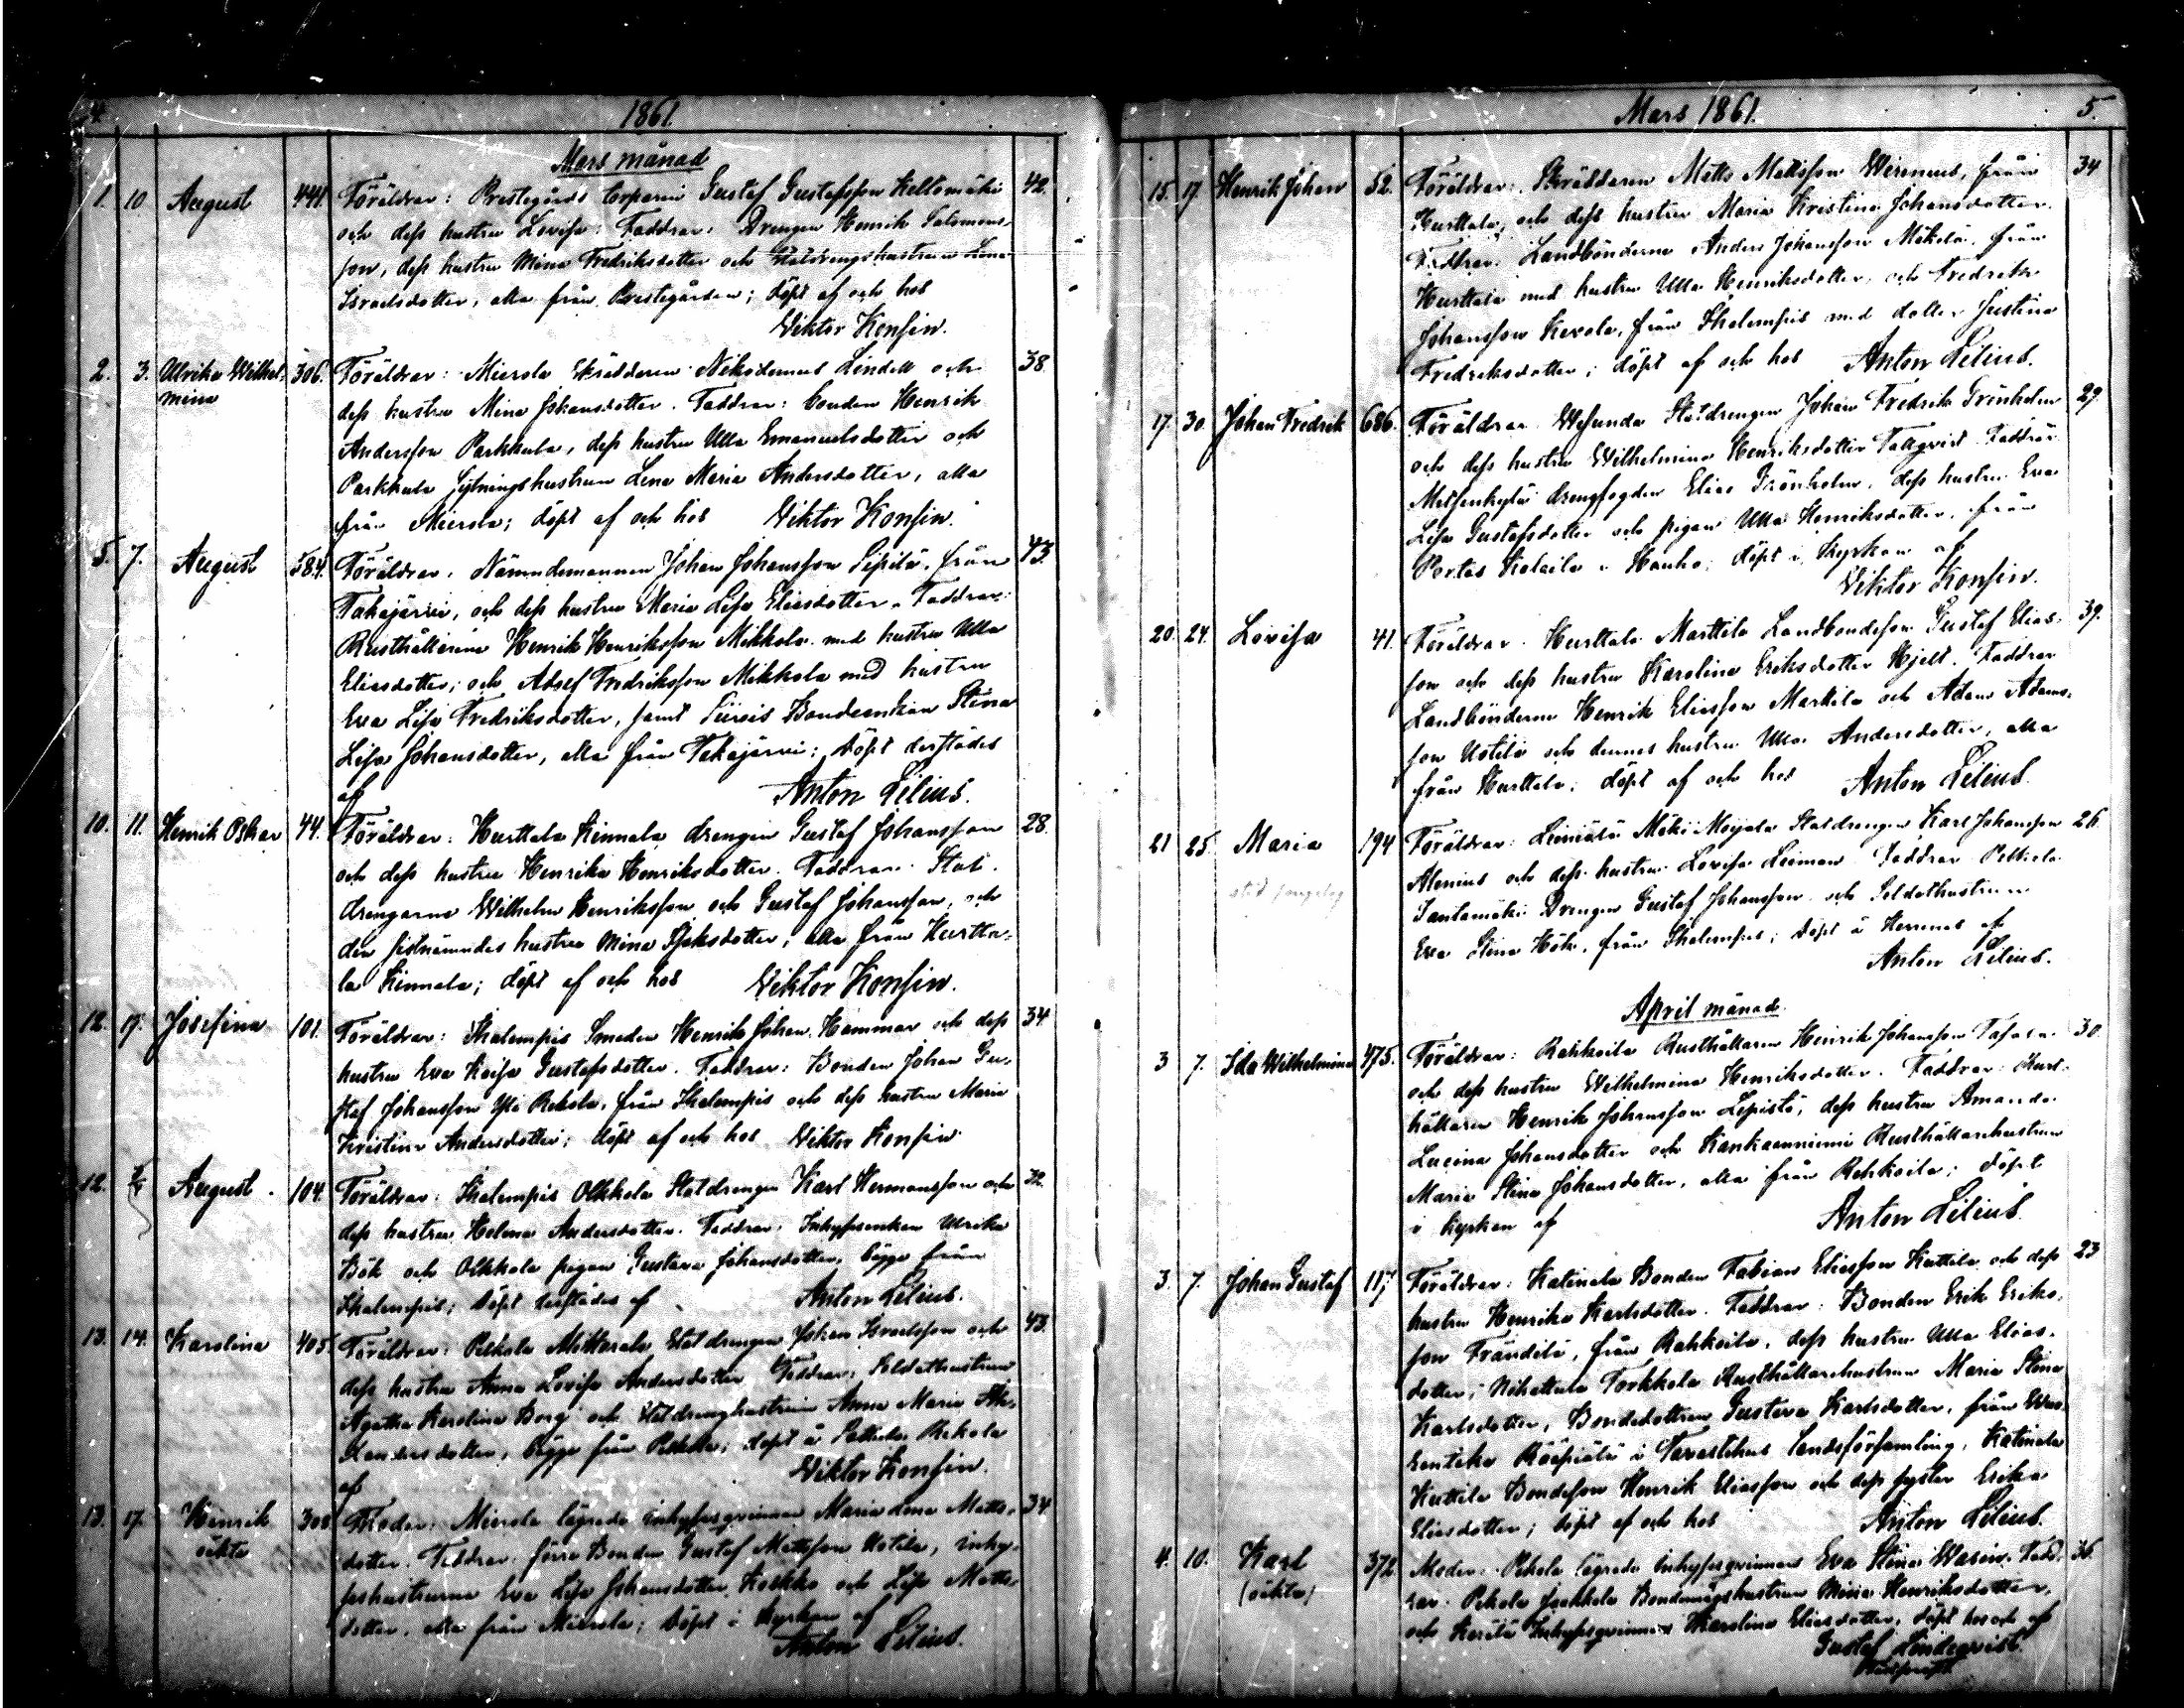 4.
1861.
Mars månad
1. 10 August 444. Föräldrar: Prestegårds torparen Gustaf Gustafsson Keltomäki 42.
och dess hustru Lovisa. Faddrar: Drengen Henrik Salomons-
son, dess hustru Mina Fredriksdotter och Statdrengshustrun Lena
Israelsdotter, alla från Prestegården; döpt af och hos
Viktor Konsin.
2. 3. Ulrika Wilhel- 306. Föräldrar: Mierola Skräddaren Nikodemus Lindell och 38.
mina dess hustru Mina Johansdotter. Faddrar: bonden Henrik
Andersson Parkkula, dess hustru Ulla Emanuelsdotter och
Parkkula Sytningshustrun Lena Maria Andersdotter, alla
från Mierola; döpt af och hos Viktor Konsin.
5. 7. August 584. Föräldrar: Nämndemannen Johan Johansson Sipilä, från 43.
Takajärvi, och dess hustru Maria Lisa Eliasdotter. Faddrar:
Rusthållarene Henrik Henriksson Mikkola med hustru Ulla
Eliasdotter; och Adolf Fredriksson Mikkola med hustru
Eva Lisa Fredriksdotter, samt Bondeenkan Stina
Lisa Johansdotter, alla från Takajärvi; döpt derstädes
af Anton Lilius.
10. 11. Henrik Oskar 44. Föräldrar: Hurttala Kinnala drengen Gustaf Johansson 28.
och dess hustru Henrika Henriksdotter. Faddrar: Stat-
drengarne Wilhelm Henriksson och Gustaf Johansson, och
den sistnämndes hustru Mina Isaksdotter, alla från Hurtta-
la Kinnala; döpt af och hos Viktor Konsin.
12. 17. Josefina 101. Föräldrar: Ihalempis Smeden Henrik Johan Hammar och dess 34
hustru Eva Kaisa Gustafsdotter. Faddrar: Bonden Johan Gu-
staf Johansson Yli Rekola, från Ihalempis och dess hustru Maria
Kristina Andersdotter; döpt af och hos Viktor Konsin
12. August. 104. Föräldrar: Ihalempis Olkkola Statdrengen Karl Hermansson och 32.
dess hustru Helena Andersdotter. Faddrar: Inhysesenkan Ulrika
Bök och Olkkola pigan Gustava Johansdotter, begge från
Ihalempis; döpt derstädes af Anton Lilius.
13. 14. Karolina 405. Föräldrar: Pelkola Statdrengen Johan Israelsson och 43.
dess hustru Anna Lovisa Andersdotter. Faddrar: Soldathustrun
Agatha Karolina Borg och Statdrenghustrun Anna Maria
begge från Pelkola; döpt å Rekola
af Viktor Konsin.
13. 17. Henrik 308 Moder: Mierola lägrada inhysesqvinnan Maria Lena Matts- 34
oäkta dotter. Faddrar: förra Bonden Gustaf Mattsson Uotila, inhy-
seshustrurna Eva Lisa Johansdotter Koskko och Lisa Matts-
dotter, alla från Mierola; döpt i kyrkan af
Anton Lilius.
Mars 1861.
5.
15. 17. Henrik Johan 52. Föräldrar: Skräddaren Matts Mattsson Wirenius, från 34
Hurttala, och dess hustru Maria Kristina Johansdotter.
Faddrar: Landbönderne Anders Johansson Mäkelä från
Hurttala med hustru Ulla Henriksdotter, och Fredrik
Johansson Kevola, från Ihalempis med dotter Justina
Fredriksdotter; döpt af och hos Anton Lilius.
17. 30 Johan Fredrik 686. Föräldrar: Wesunda Statdrengen Johan Fredrik Grönholm 29.
och dess hustru Wilhelmina Henriksdotter Tallqvist. Faddrar:
drengfogden Elias Grönholm, dess hustru Eva
Lisa Gustafsdotter och pigan Ulla Henriksdotter, från
Portas Kalaila i Hauho; döpt i kyrkan af
Viktor Konsin.
20. 24. Lovisa 41. Föräldrar: Hurttala Marttila Landbondeson Gustaf Elias- 39.
son och dess hustru Karolina Eriksdotter Hjelt. Faddrar:
Landbönderne Henrik Eliasson Marttila och Adam Adams-
son Uotila och dennes hustru Ulla Andersdotter, alla
från Hurttala; döpt af och hos Anton Lilius.
21 25. Maria 194 Föräldrar: Statdrengen Karl Johansson 26.
Alenius och dess hustru Lovisa Leiman. Faddrar: Pelkola
Santamäki Drengen Gustaf Johansson och Soldathustrun
Eva Stina Hök, från Ihalempis; döpt å af
Anton Lilius.
April månad.
3 7. Ida Wilhelmina 475. Föräldrar: Rahkoila Rusthållaren Henrik Johansson 30.
och dess hustru Wilhelmina Henriksdotter. Faddrar: Rust-
hållaren Henrik Johansson Lepistö, dess hustru Amanda
Lucina Johansdotter och Kankaanniemi Rusthållarehustrun
Maria Stina Johansdotter, alla från Rahkoila; döpt
i kyrkan af Anton Lilius.
3. 7. Johan Gustaf 117 Föräldrar: Katinala Bonden Fabian Eliasson Kuttila och dess 23
hustru Henrika Karlsdotter. Faddrar: Bonden Erik Eriks-
son Frändilä, från Rahkoila, dess hustru Ulla Elias-
dotter; Nihattula Torkkola Rusthållarehustrun Maria Stina
Karlsdotter, Bondedottren Gustava Karlsdotter, från
i Tavastehus landsförsamling, Katinala
Kuttila Bondeson Henrik Eliasson och dess syster Erika
Eliasdotter; döpt af och hos Anton Lilius.
4. 10. Karl 372 Moder: Pekola lägrada Inhysesqvinnan Eva Stina Wasin. Fadd- 36.
(oäkta) rar: Pekola Jaakkola Bondemågshustrun Mina Henriksdotter,
och Kerälä Inhysesqvinnan Karolina Eliasdotter; döpt hos och af
Gustaf Lindeqvist.